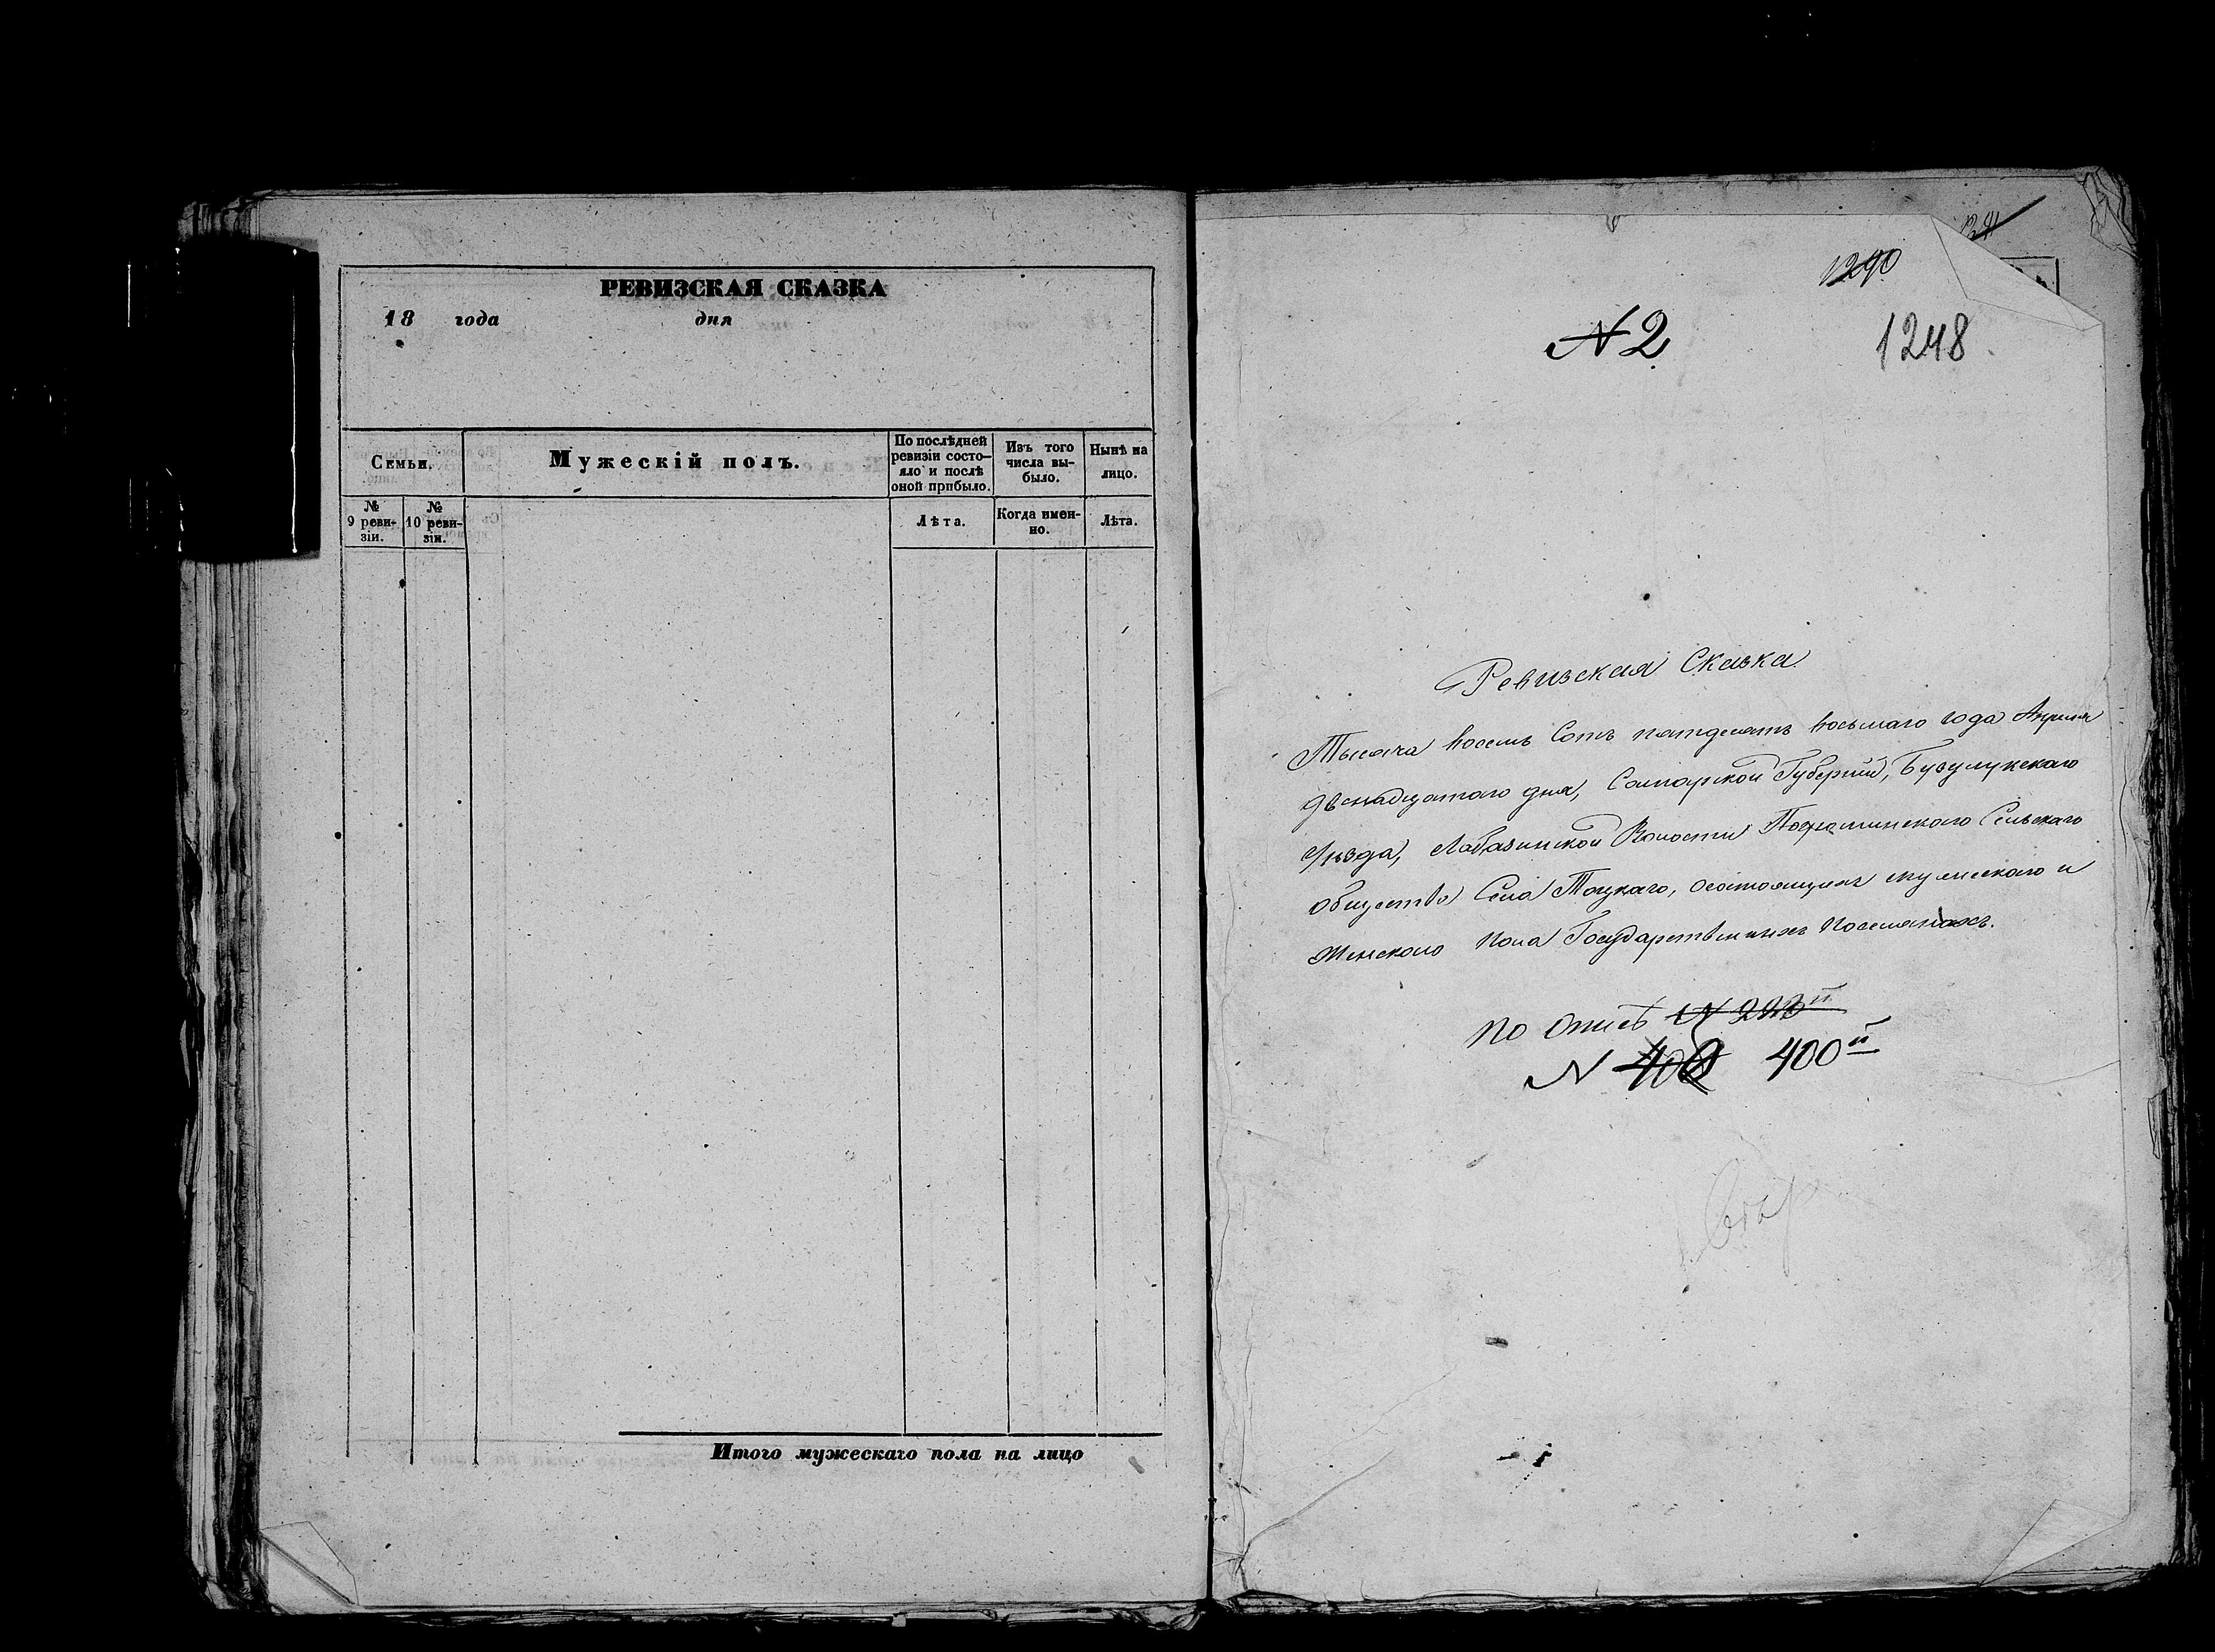 РЕВИЗСКАЯ СКАЗКА
18 года дня
Семьи.
Мужескій полъ.
По послѣдней
ревизіи состо-
яло и послѣ
оной прибыло.
Изъ того
числа вы-
было.
Нынѣ на
лицо.
№
9 реви-
зіи.
№
10 реви-
зіи.
Лѣта.
Когда имен-
но.
Лѣта.
Итого мужескаго пола на лицо
1291
1290
N 2
1248
Ревизская Сказка
Тысяча восемь Сотъ пятдесятъ восьмаго года Апреля
двенадцатого дня, Самарской Губерніи, Бузулукскаго
Уѣзда, Лабазинской Волости Сельскаго
общества Села Тоцкаго, осостоящихъ мужескаго и
Женского пола Государственныхъ Поселянахъ.
По Описѣ N
N 400й